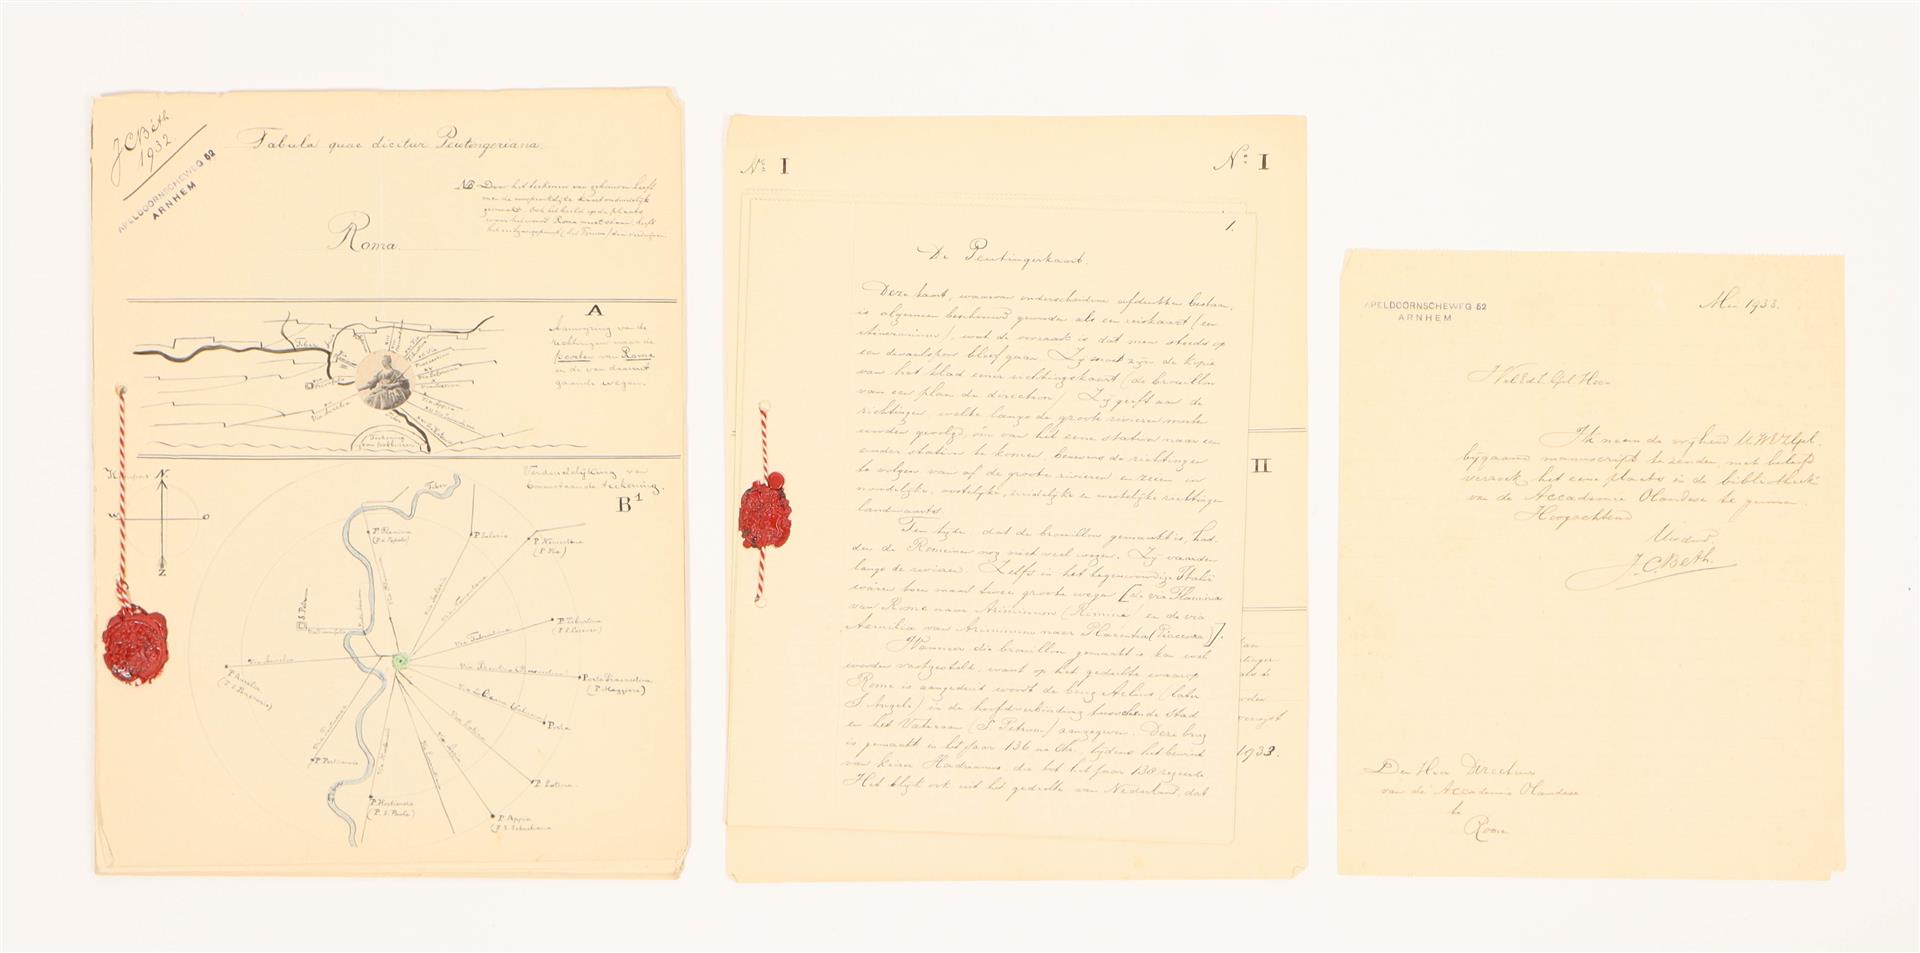 J C Béth
1932.
APELDOORNSCHEWEG 52
ARNHEM
Tabula quae dicitur Peutengeriana.
NB Door het teekenen van gebouwen heeft
men de oorspronkelijke kaart onduidelijk
gemaakt. Ook het beeld op de plaats
waar het woord Roma moet staan, heeft
het uitgangspunt (het Forum) doen verdwijnen
Roma.
A
Aanwijzing van de
richtingen naar de
poorten van Rome
en de van daaruit
gaande wegen.
Tiber
Via Aurelia
Via Appia
Verduidelijking van
bovenstaande teekening.
B¹
Kompas
N
W
O
Z
Tiber
P. Flaminia
(P. d. Popolo)
P. Salaria
P. Nomentana
(P. Pia)
S. Petrum
Via Tiburtina
P. Tiburtina
(P. S. Lorenzo)
Via Aurelia
P. Aurelia
(P. S. Pancrazio)
Via Praenestina
Porta Praenestina
(P. Maggiore)
Porta
Via Latina
P. Latina
Via Appia
P. Appia
(P. S. Sebastiano)
P. Portuensis
P. Hostiensis
(P. S. Paolo)
Nº I
Nº I
1.
De Peutingerkaart.
Deze kaart, waarvan onderscheidene afdrukken bestaan,
is algemeen beschouwd geworden als een reiskaart (een
itinerarium), wat de oorzaak is dat men steeds op
een dwaalspoor bleef gaan. Zij moet zijn de kopie
van het klad eener richtingskaart (de brouillon
van een plan de direction) Zij geeft aan de
richtingen, welke langs de groote rivieren moeten
worden gevolgd, om van het eene station naar een
ander station te komen, benevens de richtingen
te volgen van af de groote rivieren en zeeen in
noordelijke, oostelijke, zuidelijke en westelijke richtingen
landwaarts.
Ten tijde dat de brouillon gemaakt is, had-
den de Romeinen nog niet veel wegen. Zij voeren
langs de rivieren. Zelfs in het tegenwoordige Italië
waren toen maar twee groote wegen [de via Flaminia
van Rome naar Ariminum (Rimini) en de via
Aemilia van Ariminum naar Placentia (Piacenza)].
Wanneer die brouillon gemaakt is kan wel
worden vastgesteld, want op het gedeelte waarop
Rome is aangeduid wordt de brug Aelius (later
S. Angelo) in de hoofdverbinding tusschen de stad
en het Vaticaan (S. Petrum) aangegeven. Deze brug
is gemaakt in het jaar 136 na Chr., tijdens het bewind
van keizer Hadrianus, die tot het jaar 138 regeerde
Het blijkt ook uit het gedeelte van Nederland, dat
II
1933.
APELDOORNSCHEWEG 52
ARNHEM
Mei 1933.
WelEd. Gel. Heer
Ik neem de vrijheid UWEdGel.
bijgaand manuscript te zenden, met beleefd
verzoek het eene plaats in de bibliotheek
van de Accademia Olandese te geven.
Hoogachtend
Uw dw.
J. C. Béth.
Den Heer Directeur
van de Accademia Olandese
te
Rome